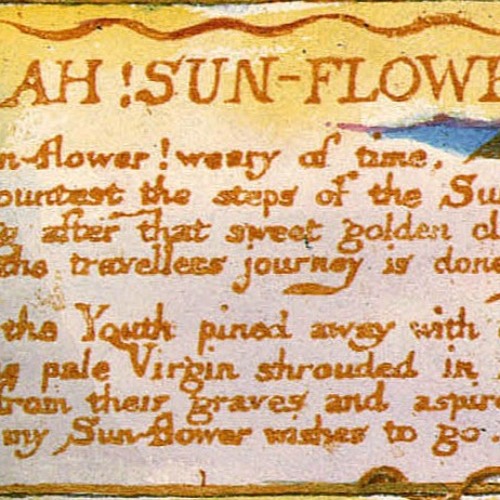 AH! SUN-FLOW
n-flower! weary of time,
ountest the steps of the Su
after that sweet golden cl
the travellers journey is done
the Youth pined away with
pale Virgin shrouded in
from their graves and aspir
my Sun-flower wishes to go